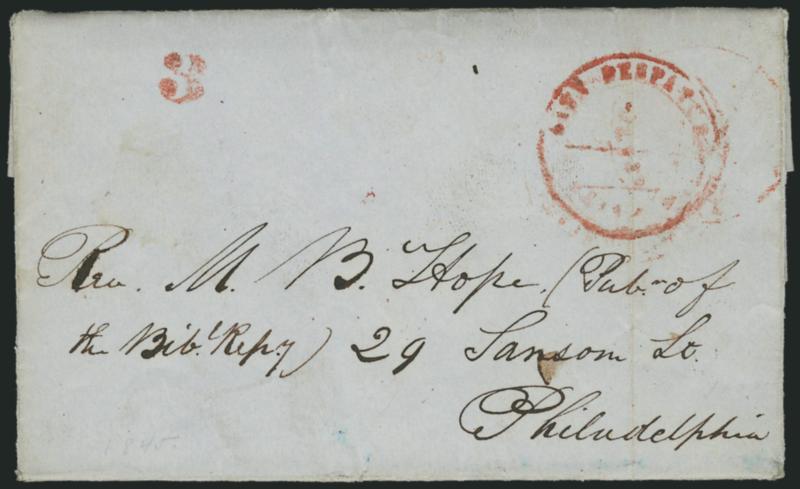 3
CITY DESPATCH
Rev. M. B. Hope. (Pubr. of
the Bibl. Repy) 29 Sansom St.
Philadelphia
1845